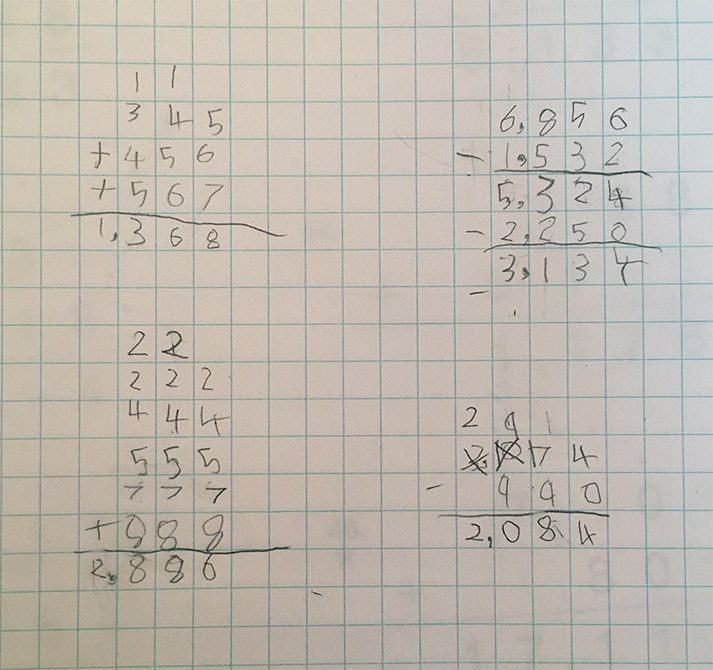 1 1
3 4 5
+ 4 5 6
+ 5 6 7
1,3 6 8
6,8 5 6
- 1,5 3 2
5,3 2 4
- 2,2 5 0
3,1 3 4
-
2 2
2 2 2
4 4 4
5 5 5
7 7 7
+ 8 8 8
2,8 8 6
2 9 1
7 4
- 9 9 0
2,0 8 4